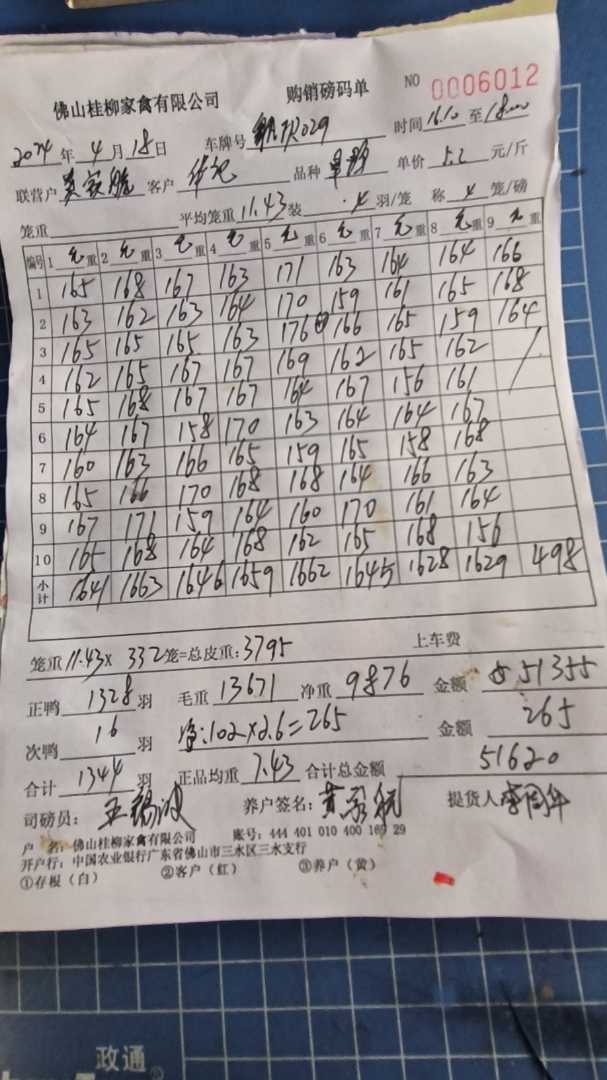 佛山桂柳家禽有限公司 购销磅码单 NO 0006012
2024年4月18日 车牌号 029 时间16.10至18:00
联营户 客户 华记 品种 单价5.2元/斤
笼重 平均笼重11.43装4羽/笼 称4笼/磅
编号 1毛重 2毛重 3毛重 4毛重 5毛重 6毛重 7毛重 8毛重 9毛重
1 165 168 167 163 171 163 164 164 166
2 163 162 163 164 170 159 161 165 168
3 165 165 165 163 176 166 165 159 164
4 162 165 167 167 169 162 165 162
5 165 168 167 167 164 167 156 161
6 164 167 158 170 163 164 164 167
7 160 163 166 165 159 165 158 168
8 165 166 170 168 168 164 166 163
9 167 171 159 164 160 170 161 164
10 165 168 164 168 162 165 168 156
小计 1641 1663 1646 1659 1662 1645 1628 1629 498
笼重11.43×332笼=总皮重:3795 上车费
正鸭1328羽 毛重13671 净重9876 金额51355
次鸭16羽 净:102×2.6=265 金额265
合计1344羽 正品均重7.43 合计总金额51620
司磅员: 养户签名: 提货人
户 名: 佛山桂柳家禽有限公司 账号: 444 401 010 400 169 29
开户行: 中国农业银行广东省佛山市三水区三水支行
①存根(白) ②客户(红) ③养户(黄)
政通